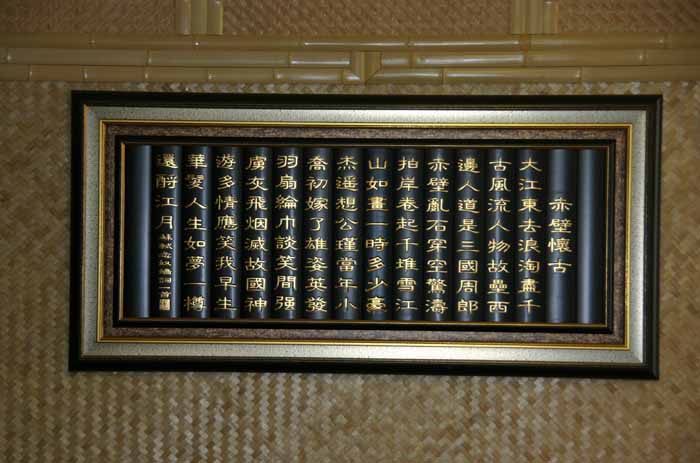 赤壁懷古
大江東去浪淘盡千
古風流人物故壘西
邊人道是三國周郎
赤壁亂石穿空驚濤
拍岸卷起千堆雪江
山如畫一時多少豪
杰遥想公瑾當年小
喬初嫁了雄姿英發
羽扇綸巾談笑間强
虜灰飛烟滅故國神
遊多情應笑我早生
華髮人生如夢一樽
還酹江月
蘇軾念奴嬌詞一首